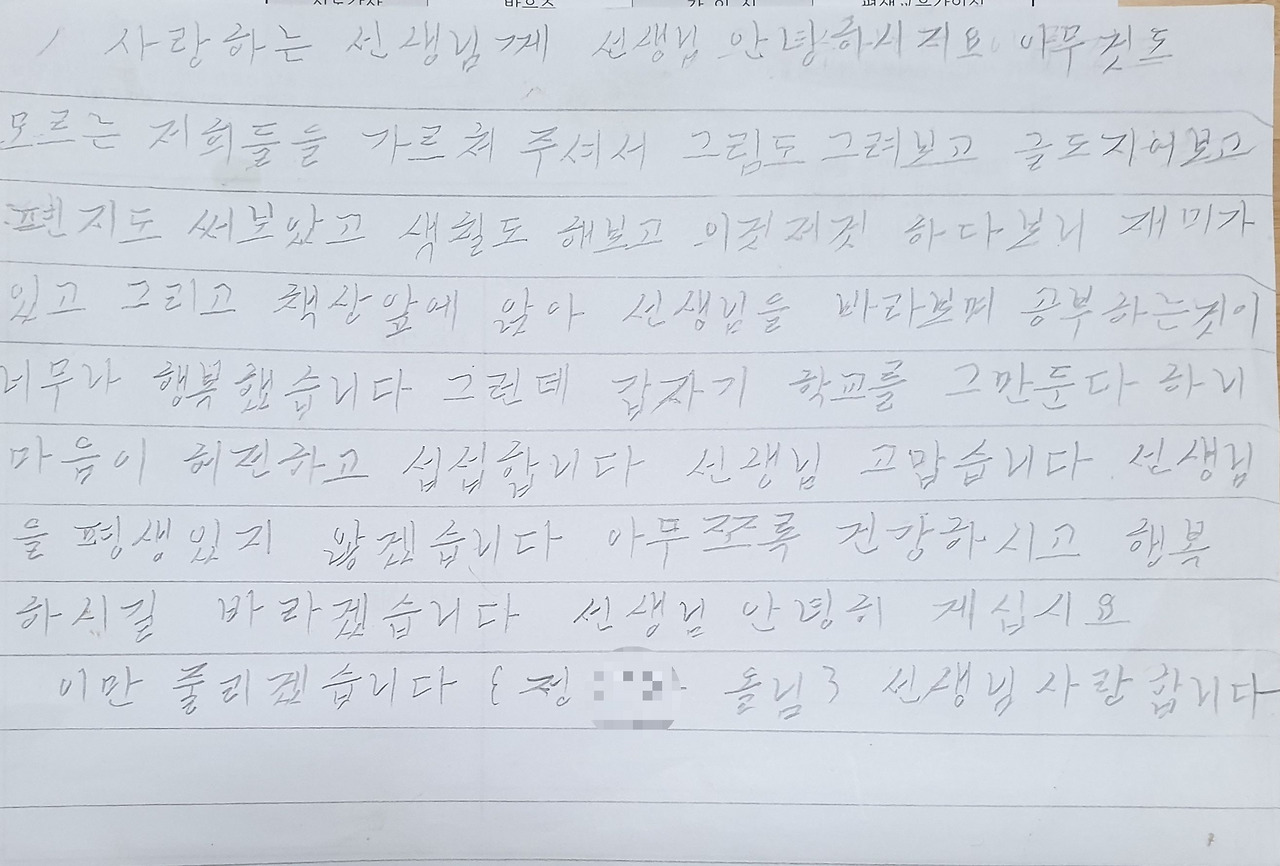 / 사랑하는 선생님게 선생님 안녕하시지요 아무것도
모르는 저희들을 가르쳐 주셔서 그림도 그려보고 글도지어보고
편지도 써보았고 색칠도 해보고 이것저것 하다보니 재미가
있고 그리고 책상앞에 앉아 선생님을 바라보며 공부하는것이
너무나 행복했습니다 그런데 갑자기 학교를 그만둔다 하니
마음이 허전하고 섭섭합니다 선생님 고맙습니다 선생님
을 평생잊지 않겠습니다 아무쪼록 건강하시고 행복
하시길 바라겠습니다 선생님 안녕히 게십시요
이만 줄리겠습니다 정 올림 선생님사랑합니다
7